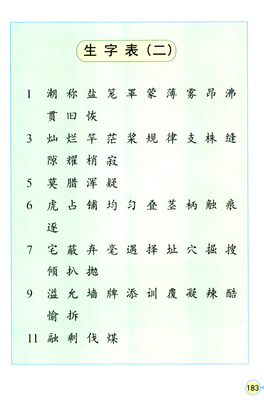 生字表(二)
1 潮 称 盐 笼 罩 蒙 薄 雾 昂 沸
贯 旧 恢
3 灿 烂 竿 茫 桨 规 律 支 株 缝
隙 耀 梢 寂
5 莫 腊 浑 疑
6 虎 占 铺 均 匀 叠 茎 柄 触 痕
逐
7 宅 蔽 弃 毫 遇 择 址 穴 掘 搜
倾 扒 抛
9 溢 允 墙 牌 添 训 覆 凝 辣 酷
愉 拆
11 融 剩 伐 煤
183